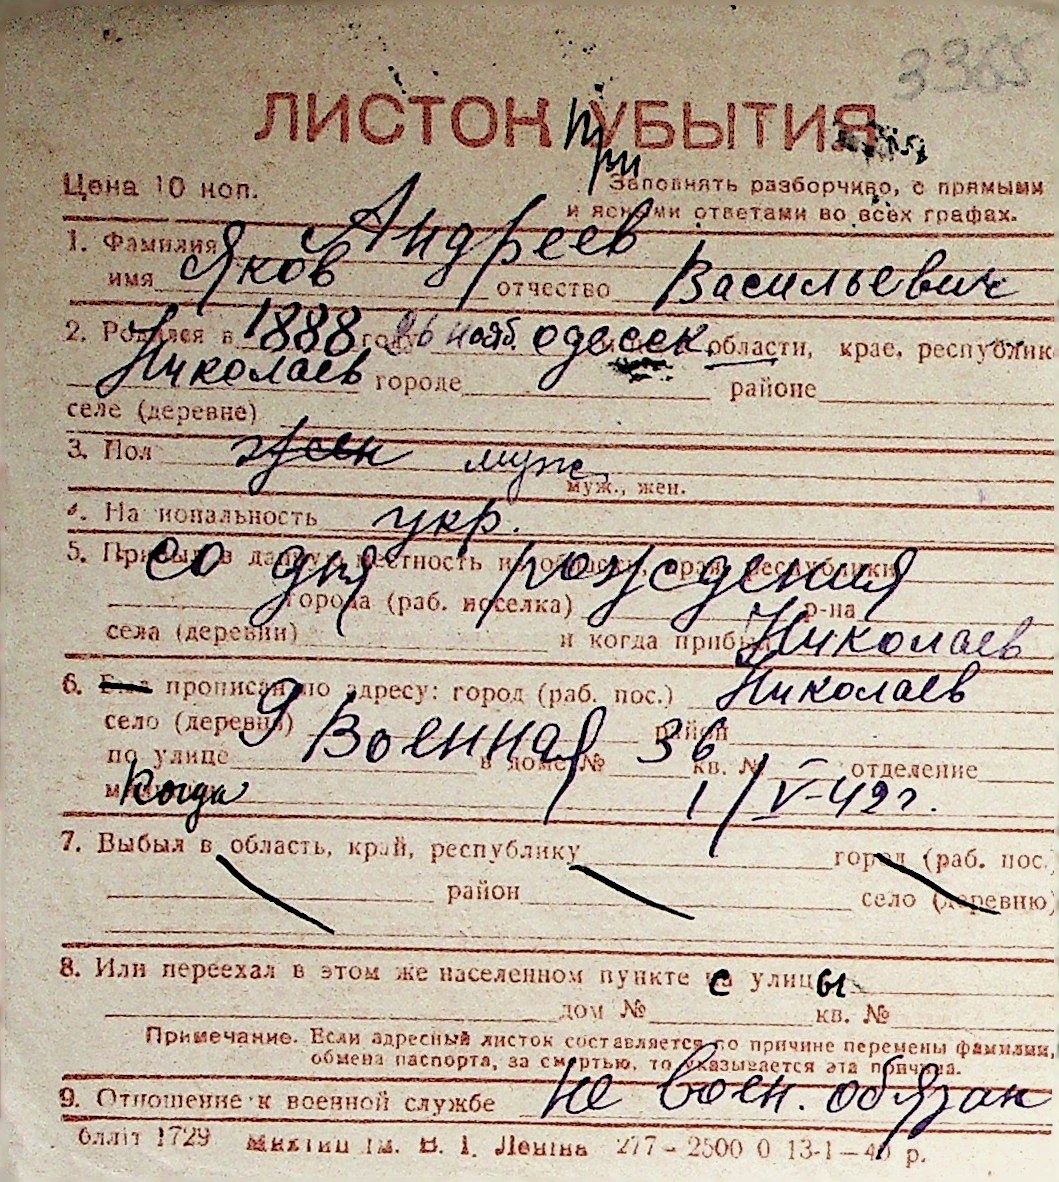 3365
ЛИСТОК при УБЫТИЯ
Цена 10 коп. Заполнять разборчиво, с прямыми
и ясными ответами во всех графах.
1. Фамилия Андреев
имя Яков отчество Васильевич
2. Родился в 1888 году 26 нояб. одесск. области, крае, республике
Николаев городе районе
селе (деревне)
3. Пол жен муж
муж., жен.
4. Национальность укр.
5. Прибыл в данную местность из области, края, республики со дня рождения
города (раб. поселка) р-на
села (деревни) и когда прибыл Николаев
6. Был прописан по адресу: город (раб. пос.) Николаев
село (деревня) район
по улице 9 Военная в доме № 36 кв. № отделение
когда 1/V-42 г.
7. Выбыл в область, край, республику город (раб. пос.)
район село (деревню)
8. Или переехал в этом же населенном пункте с улицы
дом № кв. №
Примечание. Если адресный листок составляется по причине перемены фамилии,
обмена паспорта, за смертью, то указывается эта причина.
9. Отношение к военной службе не воен. обязан
блліт 1729 Миколаїв ім. В. І. Леніна 277 – 2500 0 13-1-40 р.